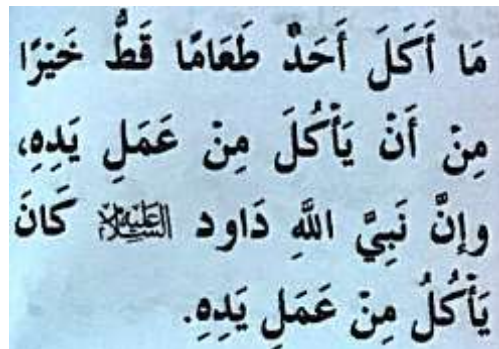 مَا أَكَلَ أَحَدٌ طَعَامًا قَطُّ خَيْرًا
مِنْ أَنْ يَأْكُلَ مِنْ عَمَلِ يَدِهِ،
وإِنَّ نَبِيَّ اللَّهِ دَاود عَلَيْهِ السَّلَام كَانَ
يَأْكُلُ مِنْ عَمَلِ يَدِهِ.